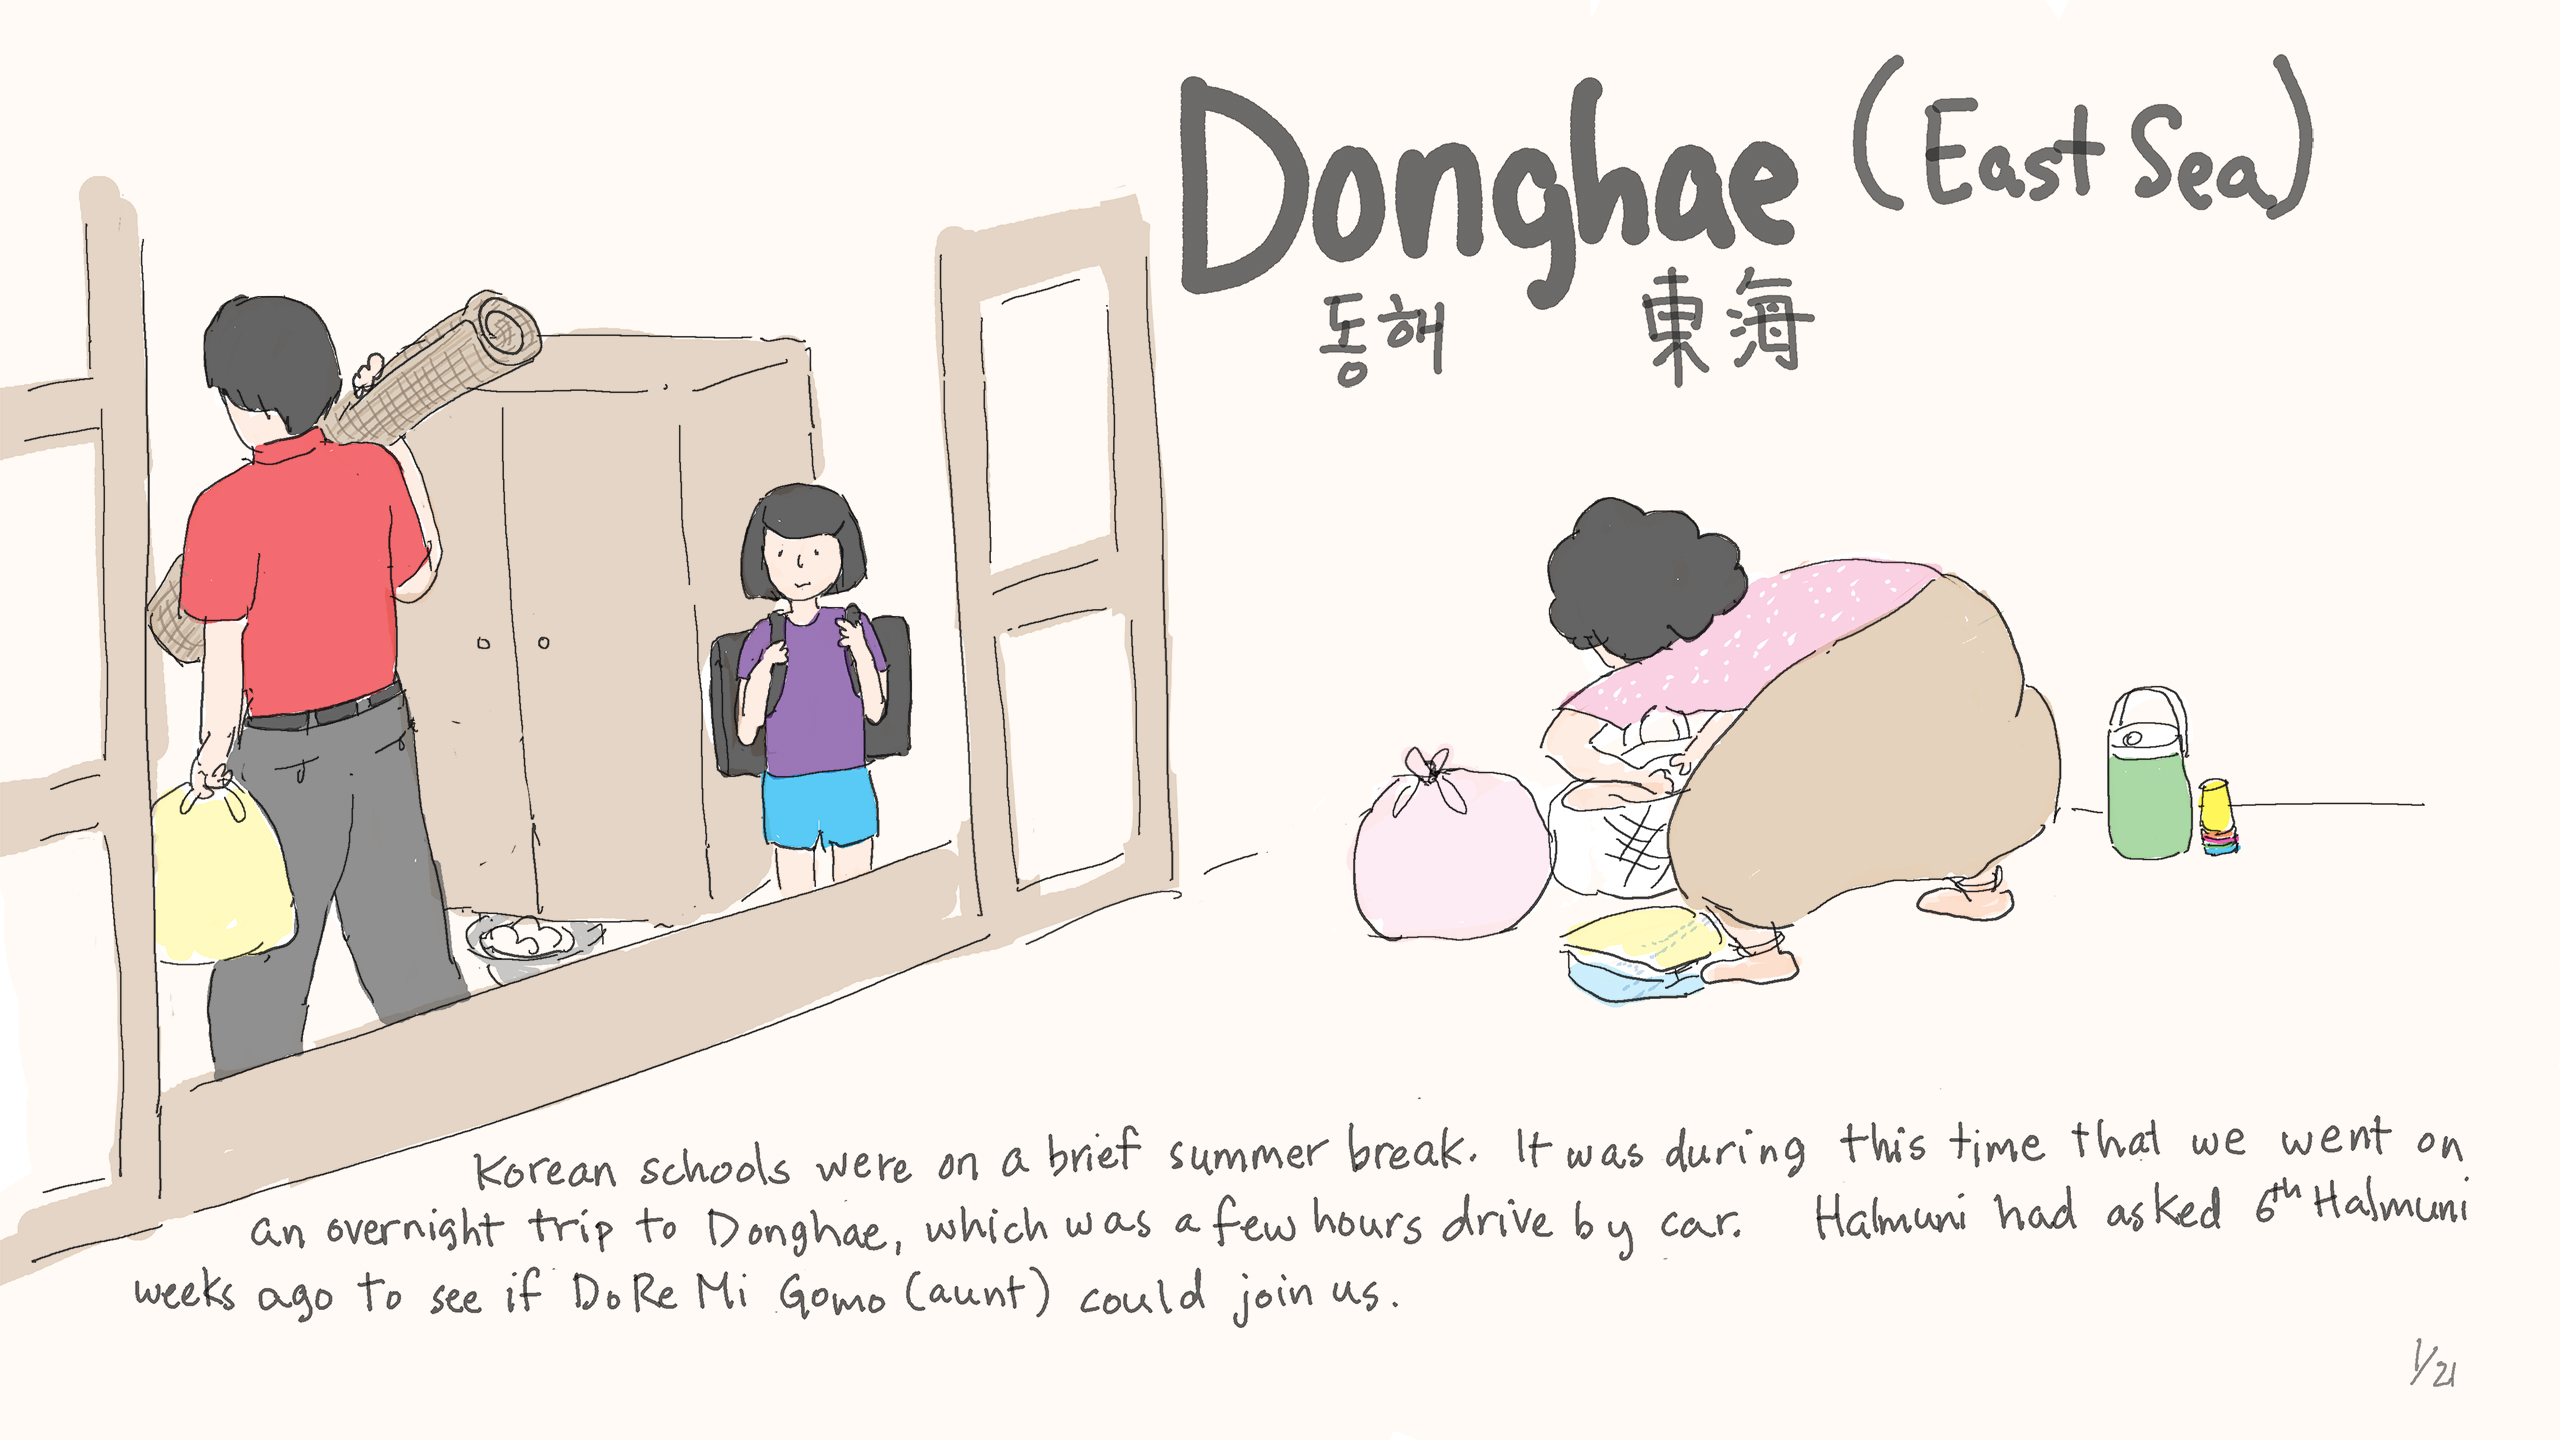 Donghae (East Sea)
동해 東海
Korean schools were on a brief summer break. It was during this time that we went on
an overnight trip to Donghae, which was a few hours drive by car. Halmuni had asked 6th Halmuni
weeks ago to see if DoReMi Gomo (aunt) could join us.
1/21